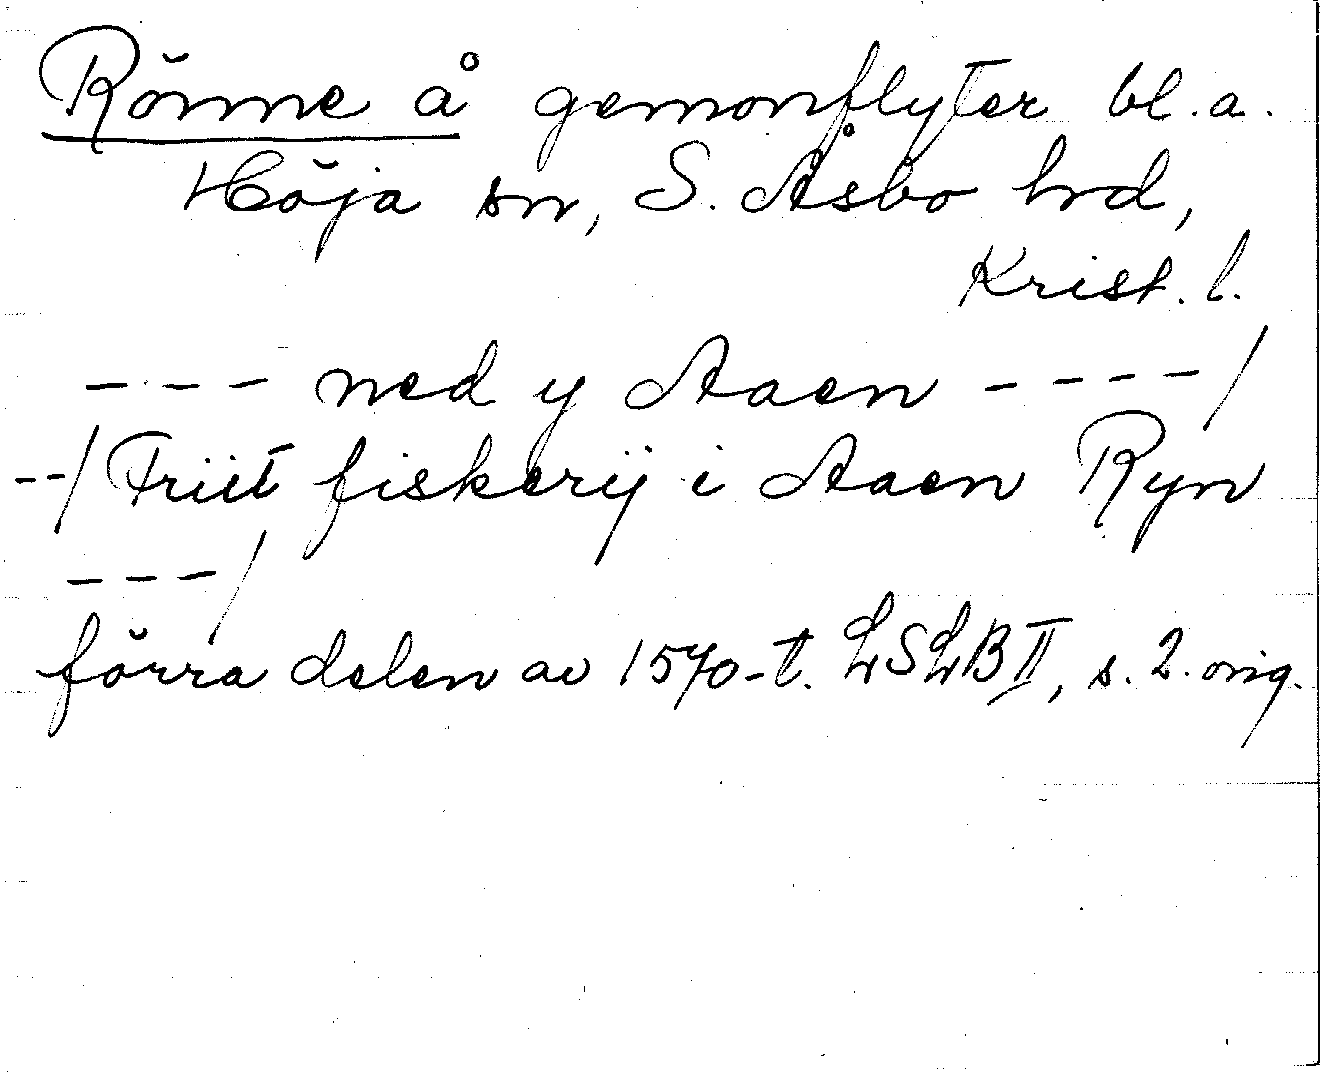 Rönne å genomflyter bl.a.
Höja sn, S. Åsbo hrd,
Krist. l.
- - - ned y Aaen - - - - /
- - / Friit fiskerij i Aaen Ryn
- - - /
förra delen av 1570-t. LSLB II, s. 2. orig.